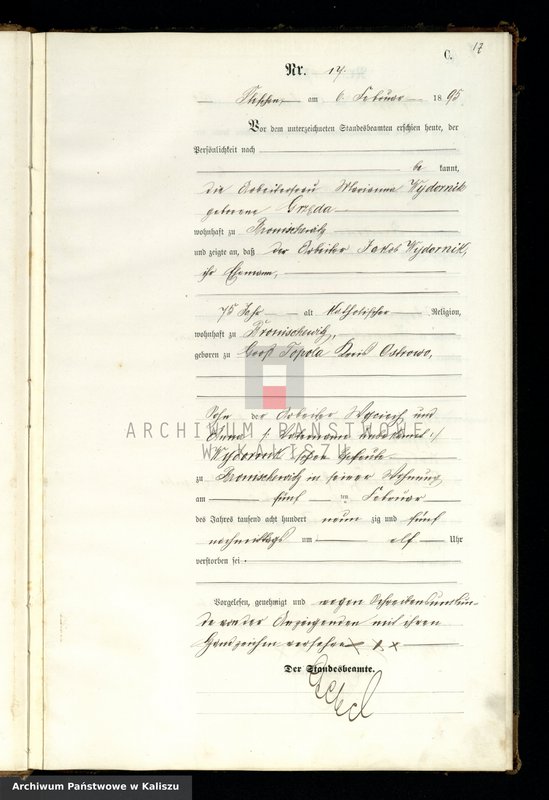 17
C.
Nr. 17.
Pleschen, am 6. Februar 1895
Vor dem unterzeichneten Standesbeamten erschien heute, der
Persönlichkeit nach
be kannt,
die Arbeiterfrau Marianna Wydornik
geborene Grzęda
wohnhaft zu Bronischewitz
und zeigte an, daß der Arbeiter Jakob Wydornik,
ihr Ehemann,
75 Jahr alt katholischer Religion,
wohnhaft zu Bronischewitz,
geboren zu Groß Topola Kreis Ostrowo,
Sohn der Arbeiter Woyciech und
Anna
Wydornik schen Eheleute
zu Bronischewitz in seiner Wohnung
am fünf ten Februar
des Jahres tausend acht hundert neun zig und fünf
nachmittags um elf Uhr
verstorben sei.
Vorgelesen, genehmigt und wegen Schreibensunkun-
de von der Anzeigenden mit ihrem
Handzeichen versehen x x x
Der Standesbeamte.
ARCHIWUM PAŃSTWOWE
W KALISZU
Archiwum Państwowe w Kaliszu